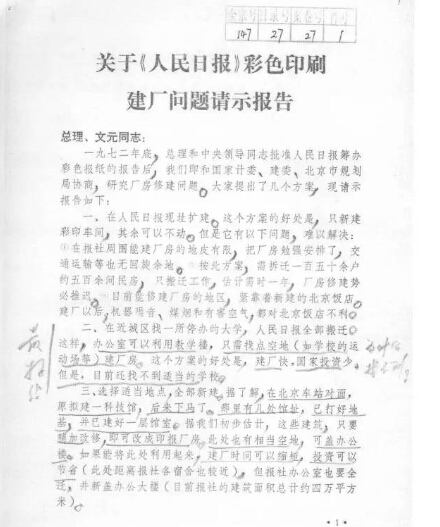 全宗号 目录号 案卷号 件号
147 27 27 1
关于《人民日报》彩色印刷
建厂问题请示报告
总理、文元同志：
一九七二年底，总理和中央领导同志批准人民日报筹办
彩色报纸的报告后，我们即和国家计委、建委、北京市规划
局协商，研究厂房修建问题。大家提出了几个方案，现请示
报告如下：
一、在人民日报现址扩建。这个方案的好处是，只新建
彩印车间，其余可以不动。但是它有以下问题，难以解决：
①在报社周围能建厂房的地皮有限，把厂房勉强安排了，交
通运输等也无回旋余地。②按此方案，需拆迁一百五十余户
约五百余间民房，只搬迁工作，估计需时一年，厂房修建势
必推迟。③目前能修建厂房的地区，紧靠着新建的北京饭店
建厂以后，机器噪音、煤烟和有害空气，都对北京饭店不利。
二、在近城区找一所停办的大学，人民日报全部搬迁。
这样，办公室可以利用教学楼，只需找点空地（如学校的运
动场等）建厂房。这个方案的好处是，建厂快，国家投资少。
但是，目前还找不到适当的学校。
三、选择适当地点，全部新建。据了解，在北京车站对面，
原拟建一科技馆，后来下马了。那里有几处馆址，已打好地
基，并已建好一层馆室。据我们初步估计，这些建筑，只要
稍加改修，即可改成印报厂房。此处也有相当空地，可盖办公
楼。如果能将此处利用起来，建厂时间可以缩短，投资可以
节省（此处距离报社各宿舍也较近）。但报社办公室也要全
迁，并新盖办公大楼（目前报社的建筑面积总计约四万平方
米）。
·1·